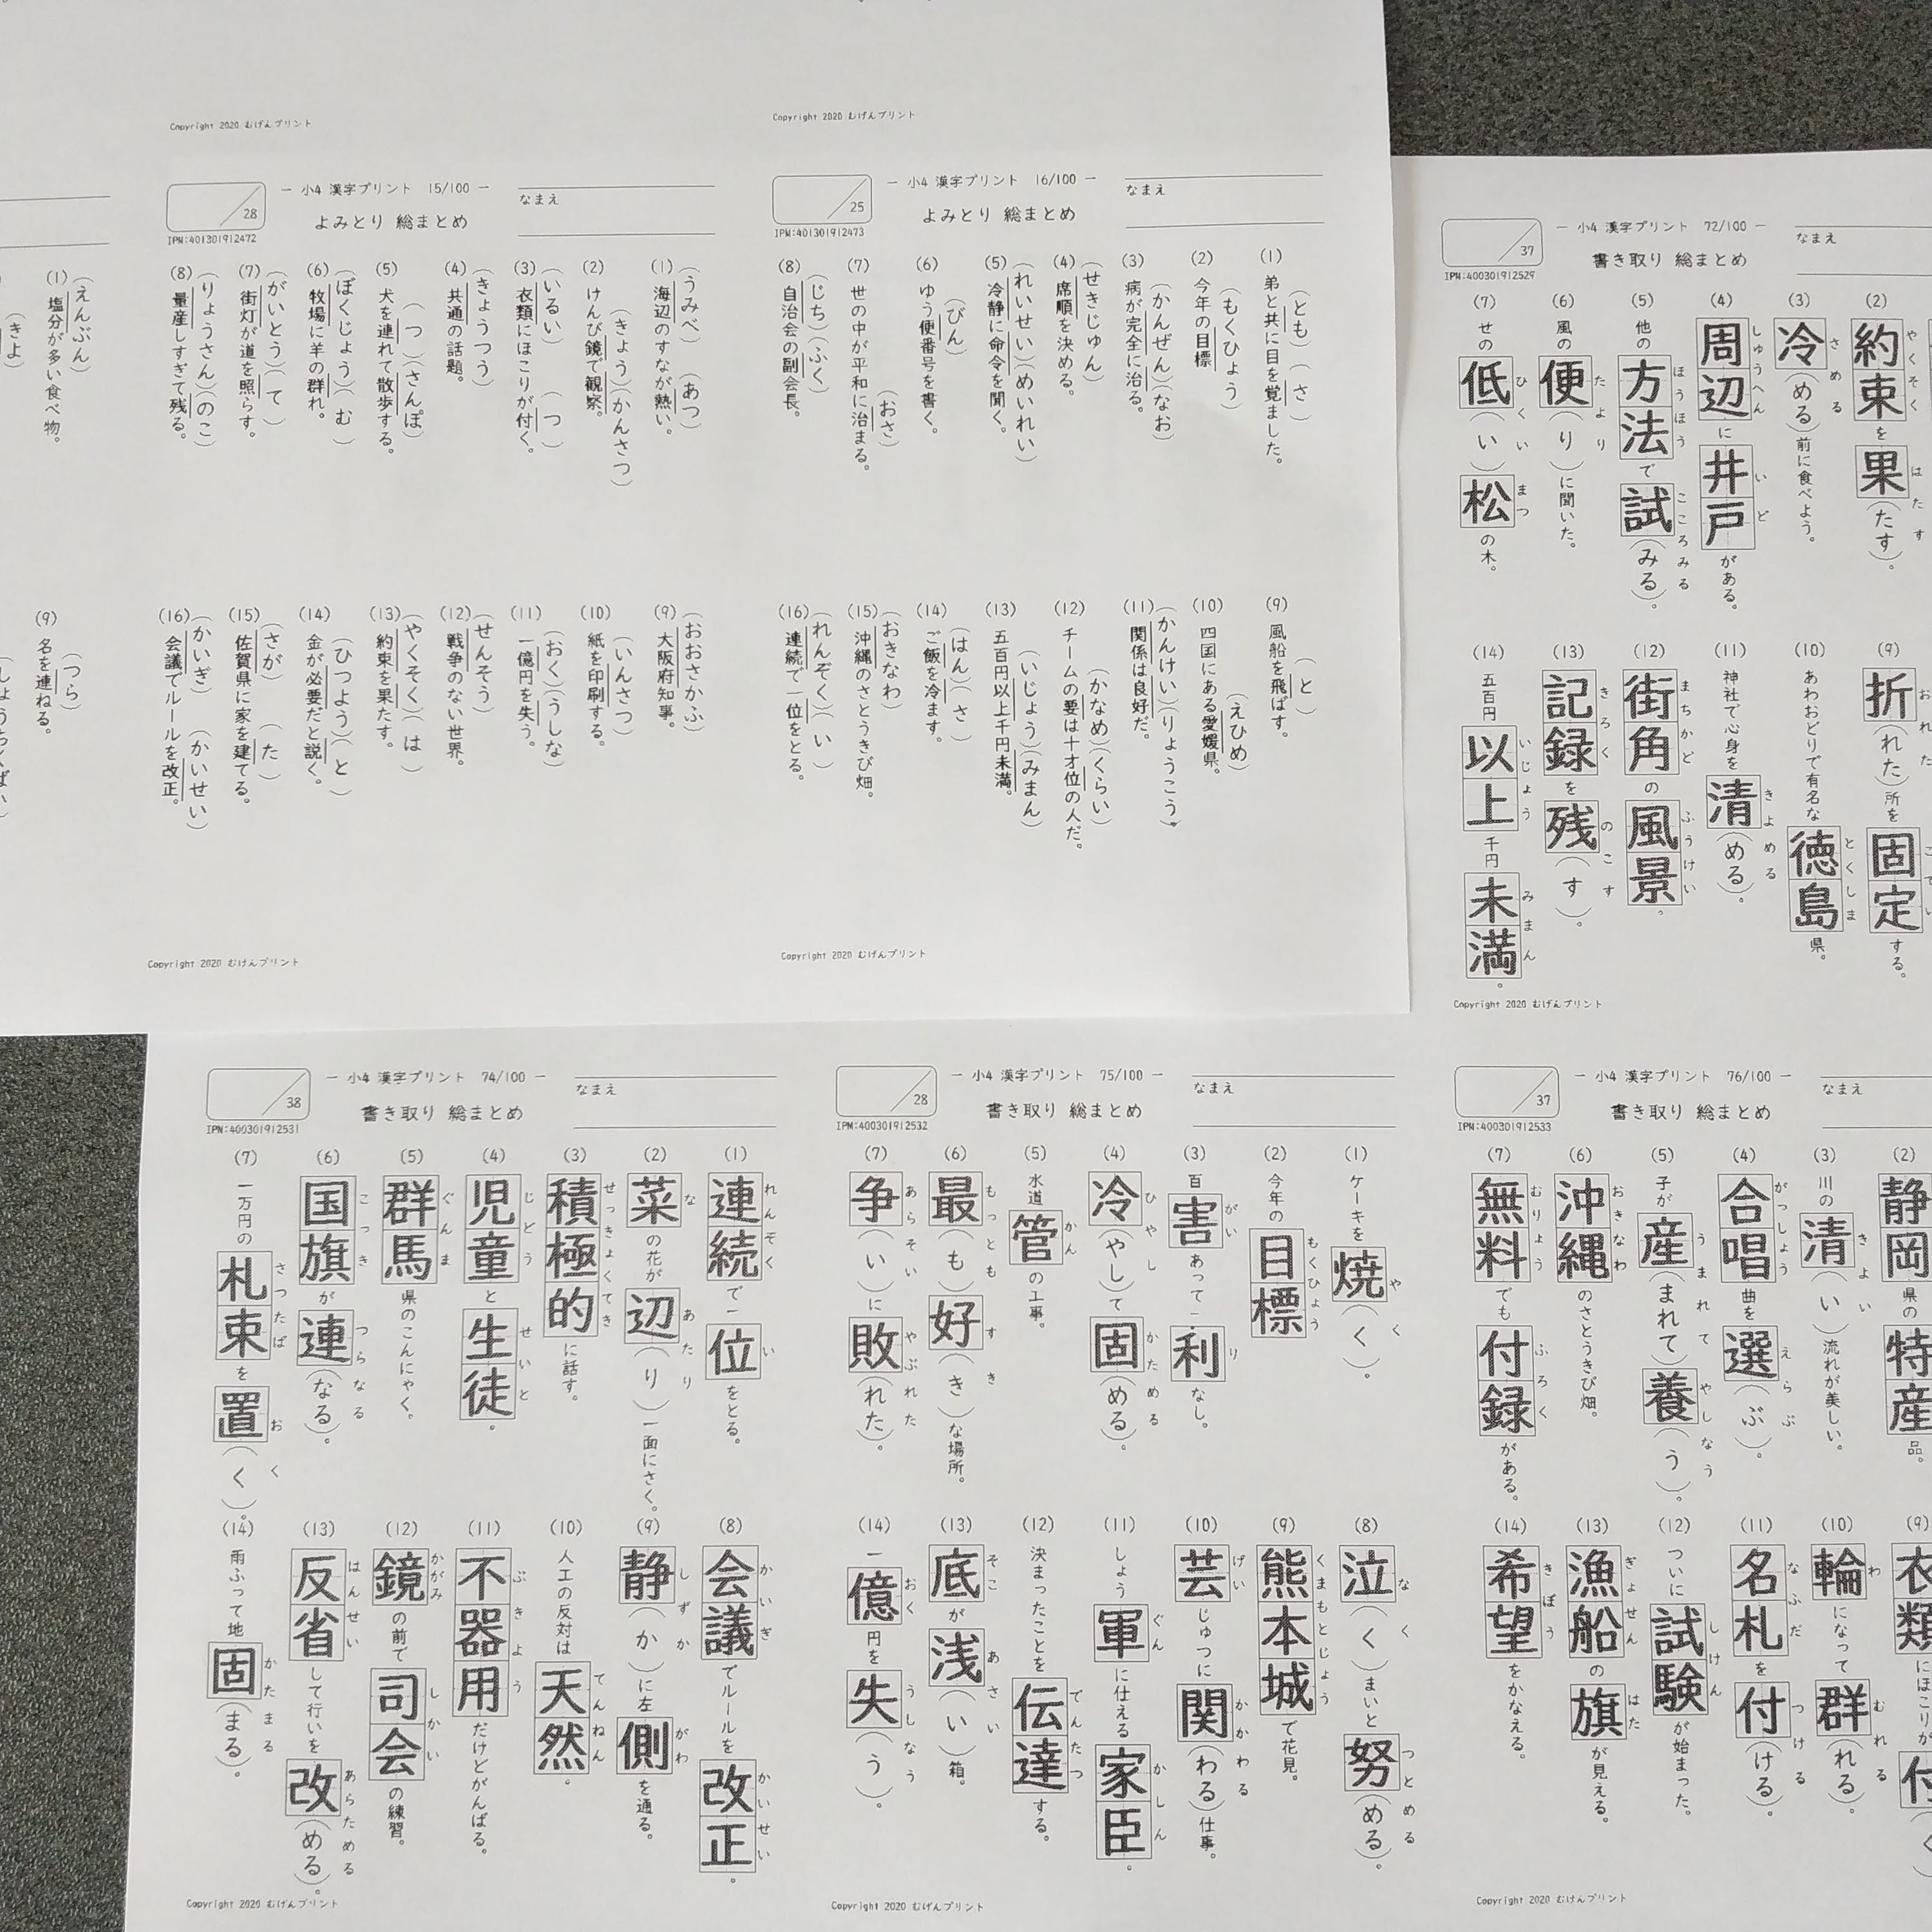 Copyright 2020 むげんプリント
Copyright 2020 むげんプリント
(1) 塩分が多い食べ物。
(えんぶん)
(きよ
(9) 名を連ねる。
(つら)
28
― 小4 漢字プリント 15/100 ―
よみとり 総まとめ
なまえ
IPN:401301912472
(1) 海辺のすなが熱い。
(うみべ) (あつ)
(2) けんび鏡で観察。
(きょう)(かんさつ)
(3) 衣類にほこりが付く。
(いるい) (つ)
(4) 共通の話題。
(きょうつう)
(5) 犬を連れて散歩する。
(つ)(さんぽ)
(6) 牧場に羊の群れ。
(ぼくじょう)(む)
(7) 街灯が道を照らす。
(がいとう)(て)
(8) 量産しすぎて残る。
(りょうさん)(のこ)
(9) 大阪府知事。
(おおさかふ)
(10) 紙を印刷する。
(いんさつ)
(11) 一億円を失う。
(おく)(うしな)
(12) 戦争のない世界。
(せんそう)
(13) 約束を果たす。
(やくそく)(は)
(14) 金が必要だと説く。
(ひつよう)(と)
(15) 佐賀県に家を建てる。
(さが) (た)
(16) 会議でルールを改正。
(かいぎ) (かいせい)
Copyright 2020 むげんプリント
25
― 小4 漢字プリント 16/100 ―
よみとり 総まとめ
なまえ
IPN:401301912473
(1) 弟と共に目を覚ました。
(とも) (さ)
(2) 今年の目標
(もくひょう)
(3) 病が完全に治る。
(かんぜん)(なお)
(4) 席順を決める。
(せきじゅん)
(5) 冷静に命令を聞く。
(れいせい)(めいれい)
(6) ゆう便番号を書く。
(びん)
(7) 世の中が平和に治まる。
(おさ)
(8) 自治会の副会長。
(じち)(ふく)
(9) 風船を飛ばす。
(と)
(10) 四国にある愛媛県。
(えひめ)
(11) 関係は良好だ。
(かんけい)(りょうこう)
(12) チームの要は十才位の人だ。
(かなめ)(くらい)
(13) 五百円以上千円未満。
(いじょう)(みまん)
(14) ご飯を冷ます。
(はん)(さ)
(15) 沖縄のさとうきび畑。
(おきなわ)
(16) 連続で一位をとる。
(れんぞく)(い)
Copyright 2020 むげんプリント
37
― 小4 漢字プリント 72/100 ―
書き取り 総まとめ
なまえ
IPN:400301912529
(2) 約束を果(たす)。
やくそく はたす
(3) 冷(める)前に食べよう。
さめる
(4) 周辺に井戸がある。
しゅうへん いど
(5) 他の方法で試(みる)。
ほうほう こころみる
(6) 風の便(り)に聞いた。
たより
(7) せの低(い)松の木。
ひくい まつ
(9) 折(れた)所を固定する。
(10) あわおどりで有名な徳島県。
とくしま
(11) 神社で心身を清(める)。
きよめる
(12) 街角の風景。
まちかど ふうけい
(13) 記録を残(す)。
きろく のこす
(14) 五百円以上千円未満。
いじょう みまん
Copyright 2020 むげんプリント
38
― 小4 漢字プリント 74/100 ―
書き取り 総まとめ
なまえ
IPN:400301912531
(1) 連続で一位をとる。
れんぞく い
(2) 菜の花が辺(り)一面にさく。
な あたり
(3) 積極的に話す。
せっきょくてき
(4) 児童と生徒。
じどう せいと
(5) 群馬県のこんにゃく。
ぐんま
(6) 国旗が連(なる)。
こっき つらなる
(7) 一万円の札束を置(く)。
さつたば おく
(8) 会議でルールを改正。
かいぎ かいせい
(9) 静(か)に左側を通る。
しずか がわ
(10) 人工の反対は天然。
てんねん
(11) 不器用だけどがんばる。
ぶきよう
(12) 鏡の前で司会の練習。
かがみ しかい
(13) 反省して行いを改(める)。
はんせい あらためる
(14) 雨ふって地固(まる)。
かたまる
Copyright 2020 むげんプリント
28
― 小4 漢字プリント 75/100 ―
書き取り 総まとめ
なまえ
IPN:400301912532
(1) ケーキを焼(く)。
やく
(2) 今年の目標
もくひょう
(3) 百害あって一利なし。
がい り
(4) 冷(やし)て固(める)。
ひやし かためる
(5) 水道管の工事。
かん
(6) 最(も)好(き)な場所。
もっとも すき
(7) 争(い)に敗(れた)。
あらそい やぶれた
(8) 泣(く)まいと努(める)。
なく つとめる
(9) 熊本城で花見。
くまもとじょう
(10) 芸じゅつに関(わる)仕事。
げい かかわる
(11) しょう軍に仕える家臣。
ぐん かしん
(12) 決まったことを伝達する。
でんたつ
(13) 底が浅(い)箱。
そこ あさい
(14) 一億円を失(う)。
おく うしなう
Copyright 2020 むげんプリント
37
― 小4 漢字プリント 76/100 ―
書き取り 総まとめ
なまえ
IPN:400301912533
(2) 静岡県の特産品。
(3) 川の清(い)流れが美しい。
きよい
(4) 合唱曲を選(ぶ)。
がっしょう えらぶ
(5) 子が産(まれて)養(う)。
うまれて やしなう
(6) 沖縄のさとうきび畑。
おきなわ
(7) 無料でも付録がある。
むりょう ふろく
(9) 衣類にほこりが付(く
(10) 輪になって群(れる)。
わ むれる
(11) 名札を付(ける)。
なふだ つける
(12) ついに試験が始まった。
しけん
(13) 漁船の旗が見える。
ぎょせん はた
(14) 希望をかなえる。
きぼう
Copyright 2020 むげんプリント